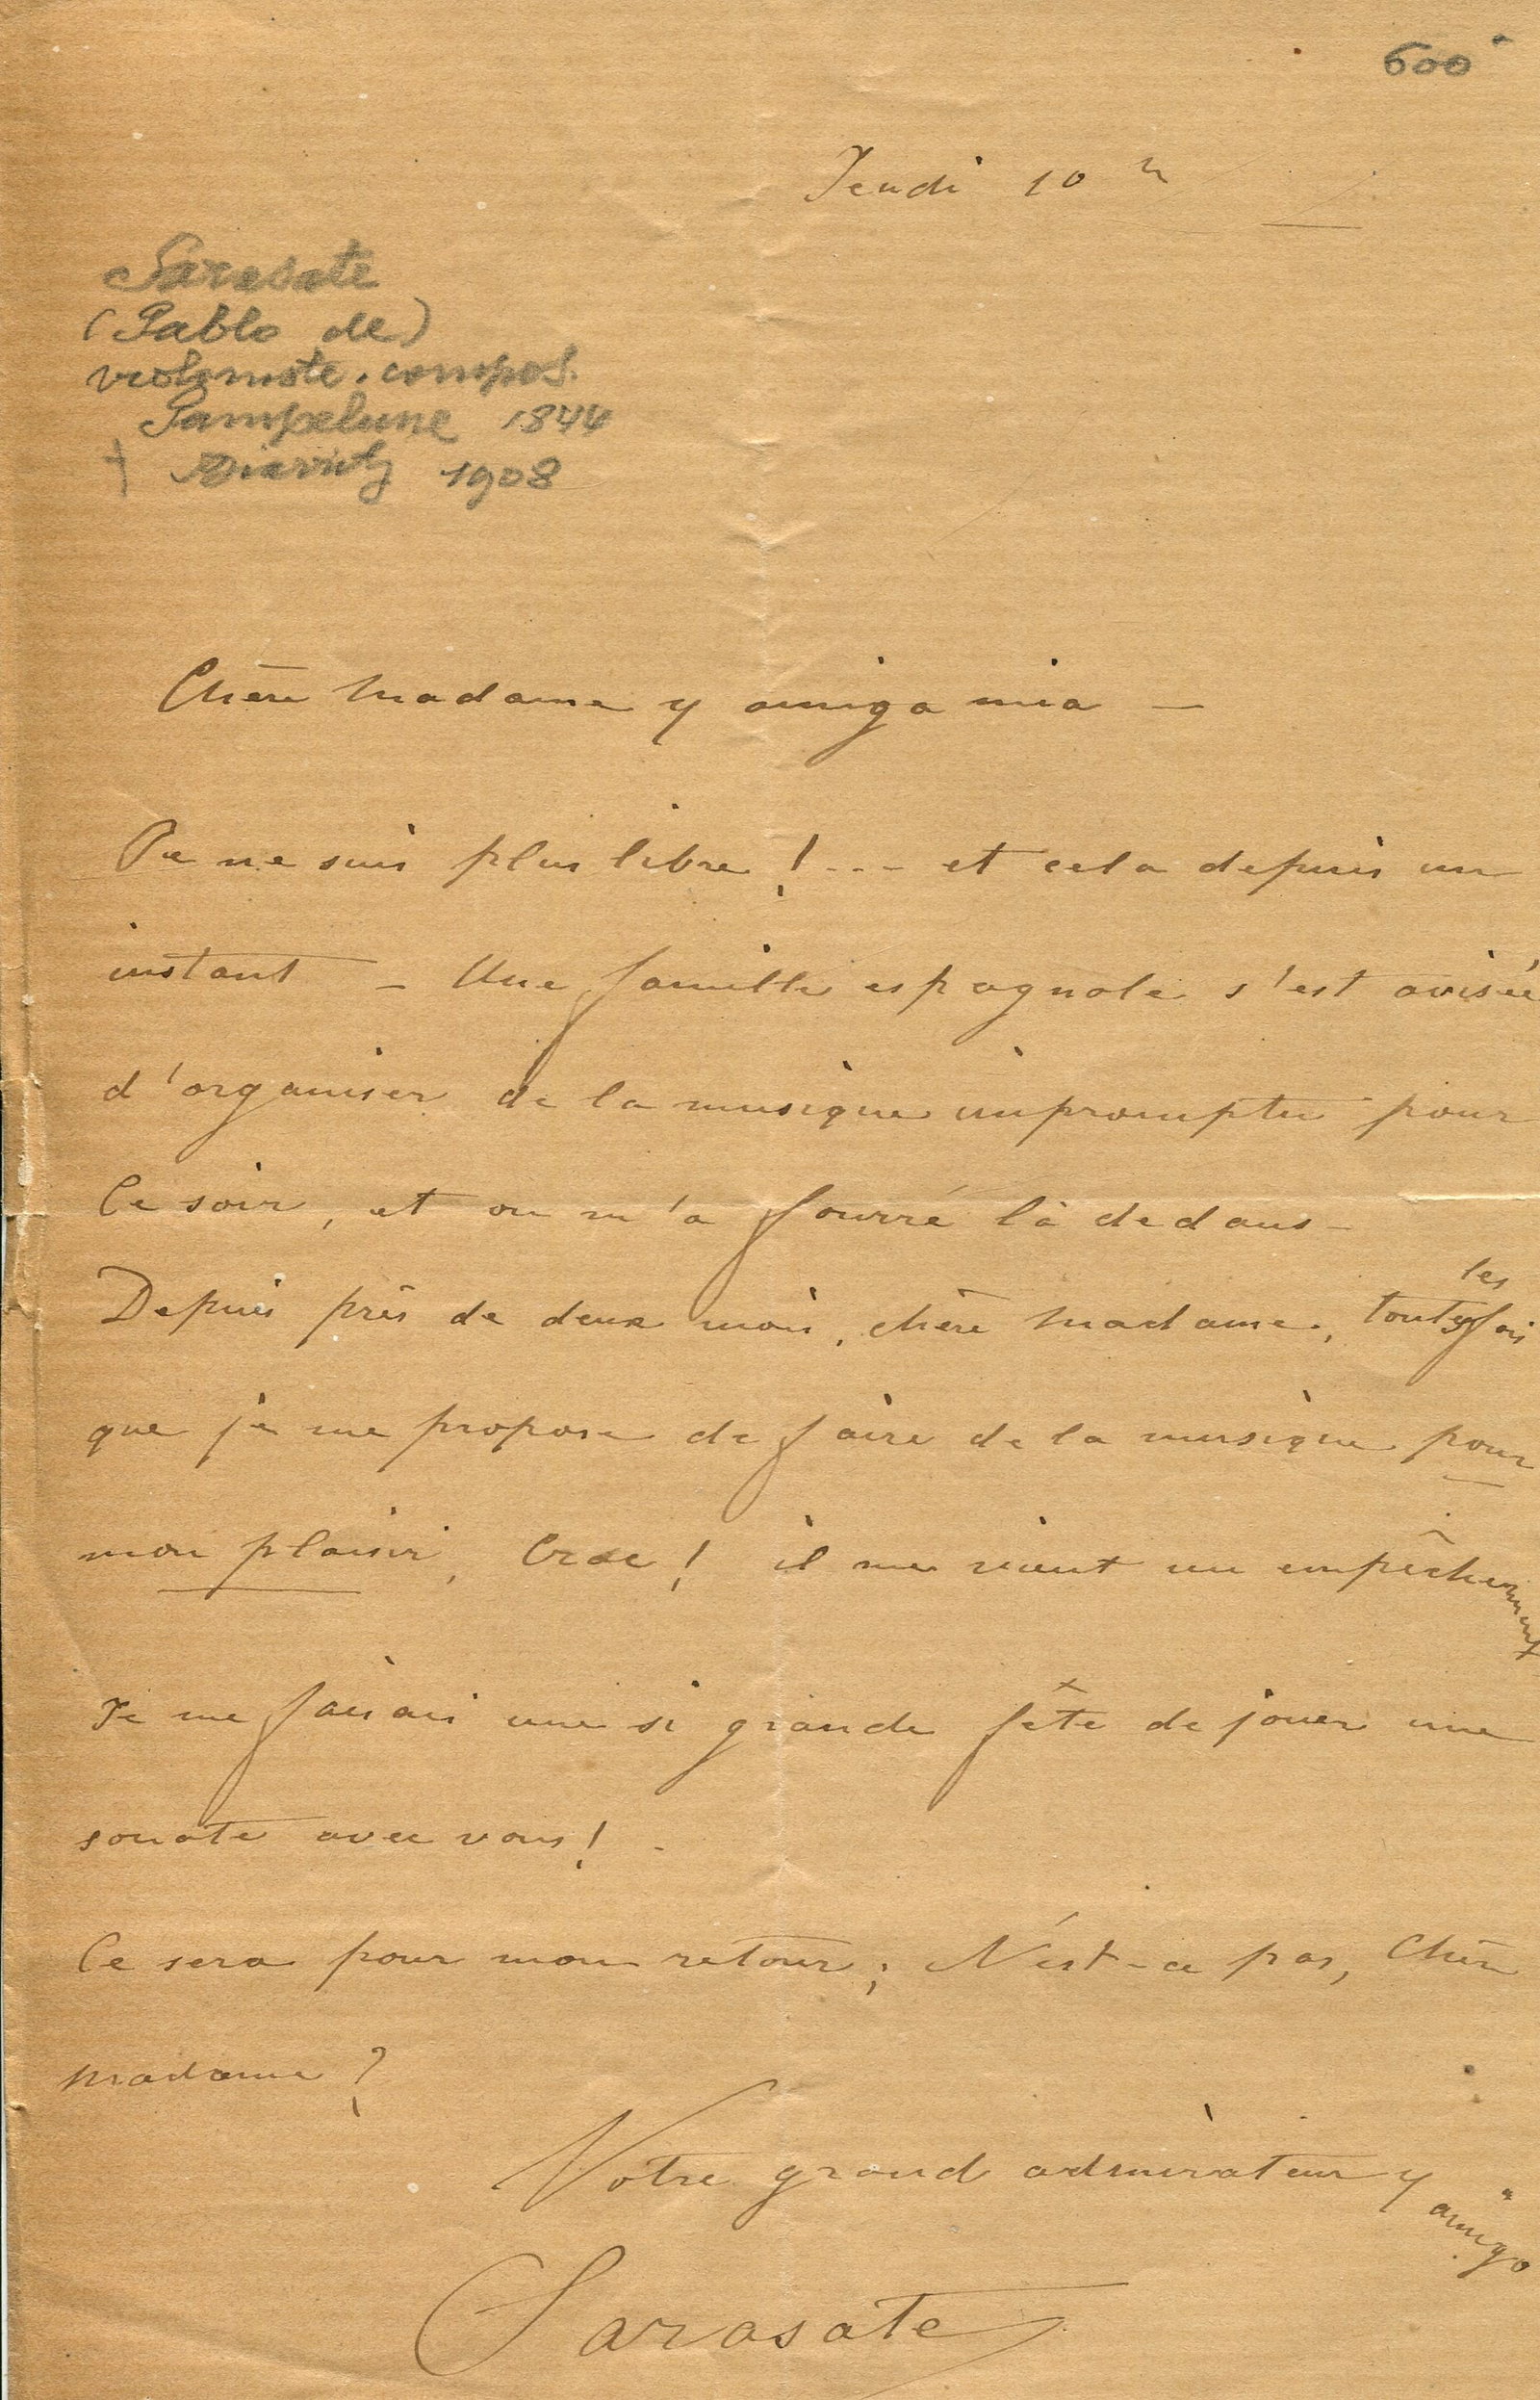 600
Jeudi 10 h
Sarasate
(Pablo de)
violoniste. compos.
Pampelune 1844
† Biarritz 1908
Chère Madame y amiga mia –
Je ne suis plus libre! --- et cela depuis un
instant – Une famille espagnole s'est avisée
d'organiser de la musique impromptu pour
ce soir, et on m'a fourré là dedans –
Depuis près de deux mois, chère Madame, toutes les fois
que je me propose de faire de la musique pour
mon plaisir, Crac! il me vient un empêchement
Je me faisais une si grande fête de jouer une
sonate avec vous! -
Ce sera pour mon retour; N'est-ce pas, Chère
Madame?
Votre grand admirateur y amigo
Sarasate